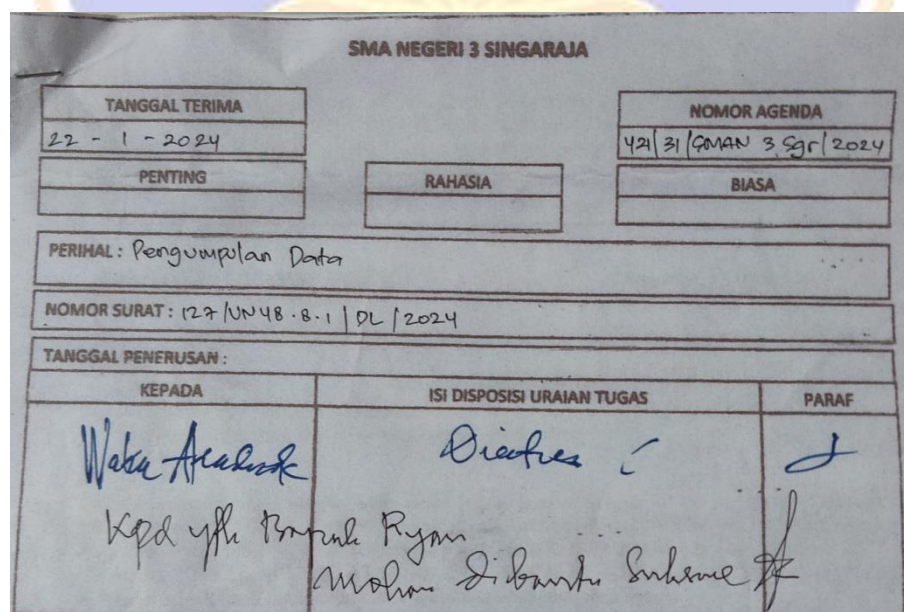 SMA NEGERI 3 SINGARAJA
TANGGAL TERIMA
22 - 1 - 2024
NOMOR AGENDA
421/31/SMAN 3 Sgr/2024
PENTING
RAHASIA
BIASA
PERIHAL : Pengumpulan Data
NOMOR SURAT : 127/UN48.8.1/DL/2024
TANGGAL PENERUSAN :
KEPADA
ISI DISPOSISI URAIAN TUGAS
PARAF
Waka Akademik
Kpd yth Bapak Ryan
Mohon dibantu Suksme